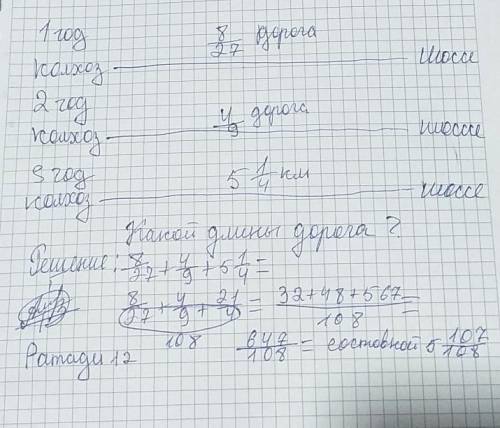 1 год 8/27 дорога
колхоз шоссе
2 год
колхоз 4/9 дорога шоссе
3 год 5 1/4 км
колхоз шоссе
Какой длины дорога?
Решение: 8/27 + 4/9 + 5 1/4 =
8/27 + 4/9 + 21/4 = 32+48+567/108 =
108
647/108 = составной 5 107/108
Ратади 12